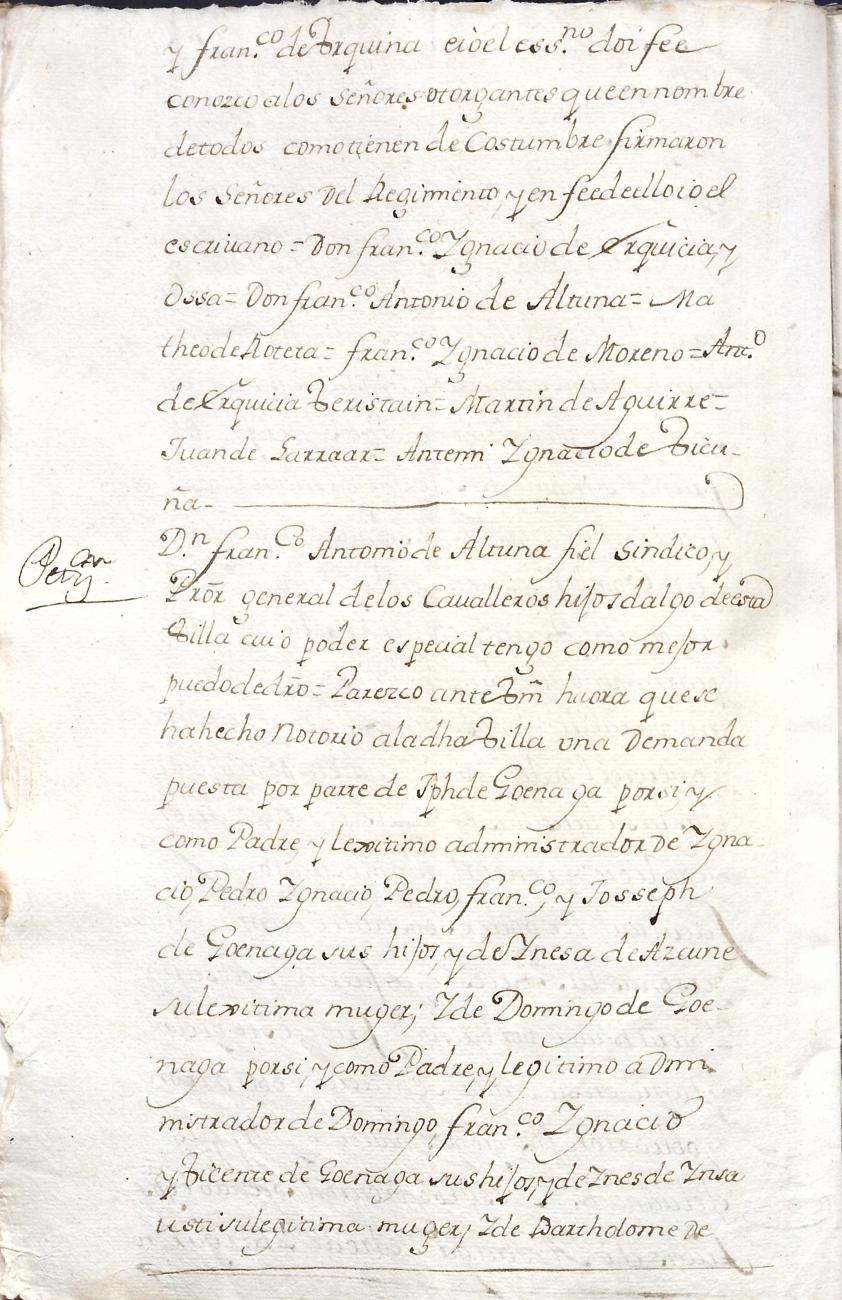 y fran.co de Vrquina eio el ess.no doi fee
conozco a los Señores otorgantes que en nombre
de todos como tienen de Costumbre firmaron
los Señores Del Regimiento, y en fee de ello io el
escriuano = Don fran.co Ygnacio de Vrquicia, y
Ossa = Don fran.co Antonio de Altuna = Ma
theo de Roteta = fran.co Ygnacio de Moreno = Ant.o
de Vrquicia Veristain = Martin de Aguirre =
Juan de Larraar = Antemi Ygnacio de Vicu-
ña -
Petz.on
D.n fran.co Antonio de Altuna fiel Sindico, y
Pror general de los Cavalleros hijos dalgo de esta
Villa cuio poder especial tengo como mejor
puedo de dro = Parezco ante Vm haora que se
ha hecho Notorio a la dha Villa una Demanda
puesta por parte de Jph de Goenaga por si y
como Padre, y lexitimo administrador De Ygna
cio, Pedro Ygnacio, Pedro, fran.co, y Josseph
de Goenaga sus hijos, y de Ynesa de Azcune
su lexitima muger; Y de Domingo de Goe
naga por si, y como Padre, y legitimo admi
nistrador de Domingo, fran.co Ygnacio
y Vicente de Goenaga sus hijos, y de Ynes de Ynsa
usti su legitima muger; Y de Bartholome De